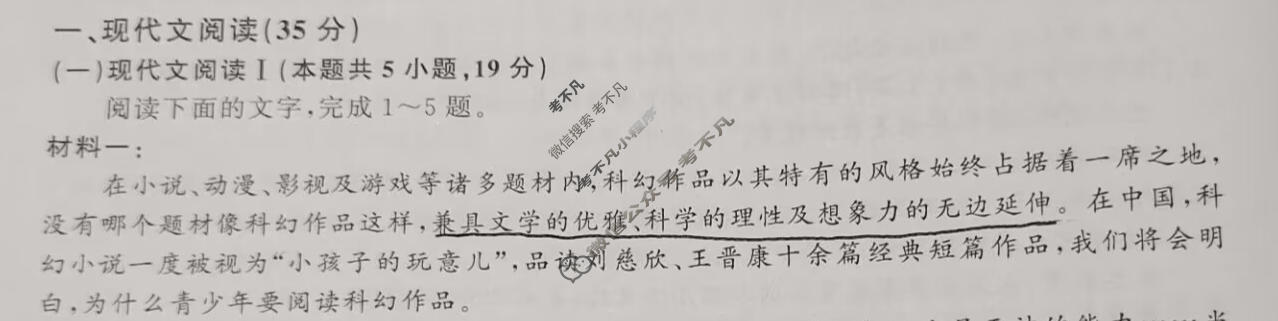 一、现代文阅读(35 分)
(一)现代文阅读Ⅰ(本题共 5 小题,19 分)
阅读下面的文字,完成 1～5 题。
材料一:
在小说、动漫、影视及游戏等诸多题材内,科幻作品以其特有的风格始终占据着一席之地,
没有哪个题材像科幻作品这样,兼具文学的优雅、科学的理性及想象力的无边延伸。在中国,科
幻小说一度被视为“小孩子的玩意儿”,品读刘慈欣、王晋康十余篇经典短篇作品,我们将会明
白,为什么青少年要阅读科幻作品。
考不凡
微信搜索 考不凡
考不凡小程序
微信公众 考不凡